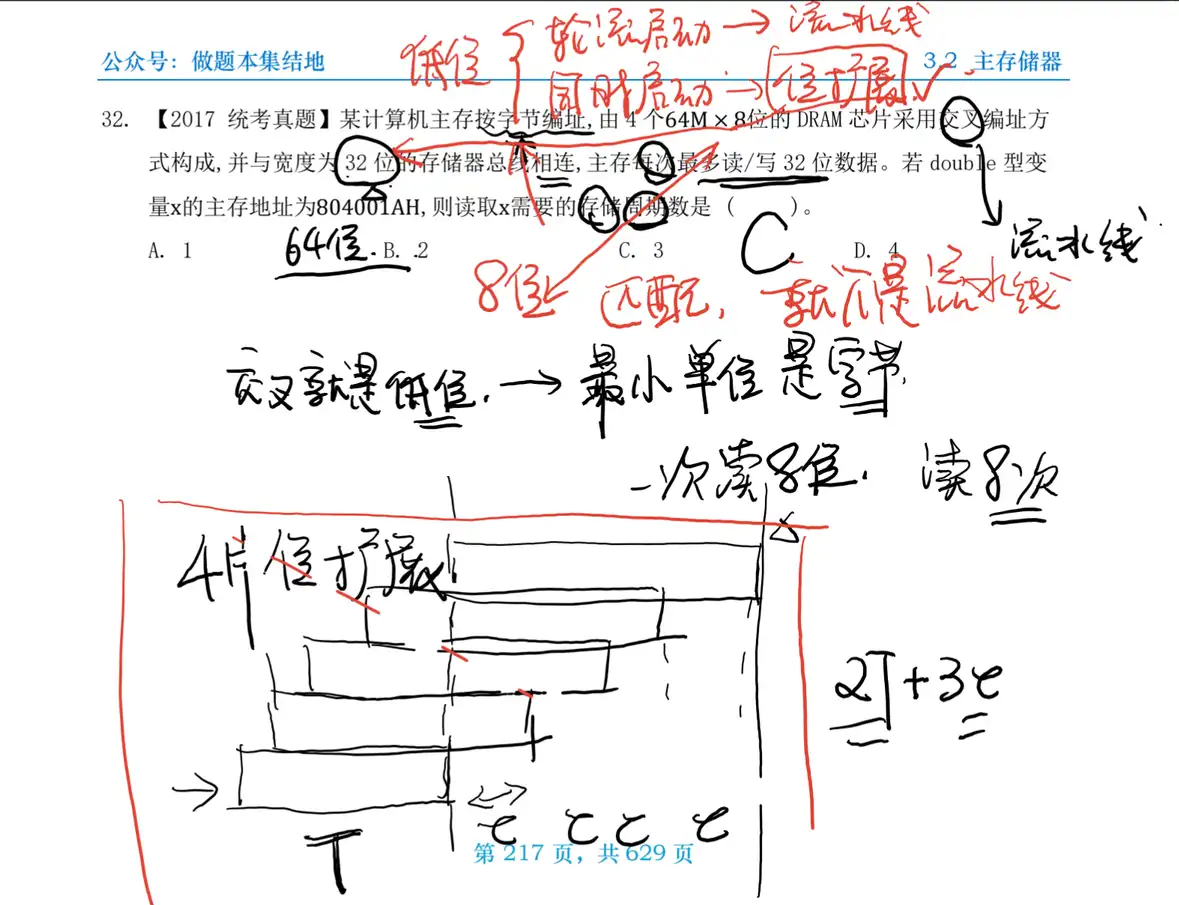 低位 轮流启动 → 流水线
公众号：做题本集结地 3.2 主存储器
同时启动 → 位扩展 ✓
32. 【2017 统考真题】某计算机主存按字节编址,由 4 个64M×8位的 DRAM 芯片采用交叉编址方
式构成,并与宽度为 32 位的存储器总线相连,主存每次最多读/写 32 位数据。若 double 型变
量x的主存地址为804001AH,则读取x需要的存储周期数是 ( )。
C
流水线
A. 1 B. 2 C. 3 D. 4
64位
8位 匹配, 就不是流水线
交叉就是低位. → 最小单位是字节.
一次读8位. 读8次
4片位扩展
2T+3τ
τ τ τ τ
T
第 217 页，共 629 页